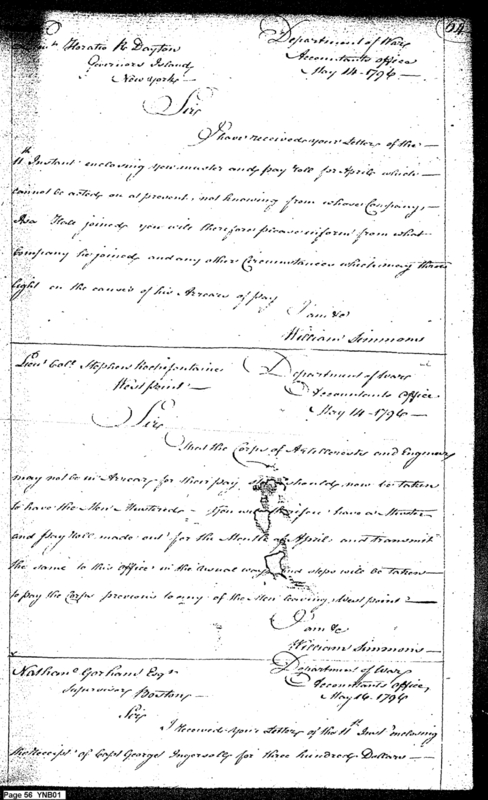 64
Horatio R Dayton
Governors Island
New York
Department of War
Accountants office
May 14. 1796
Sir
I have received your Letter of the
11th Instant enclosing your muster and pay roll for April which
cannot be acted on at present, not knowing from whose Company,
Asa Hall joined you will therefore please inform from what
Company he joined and any other Circumstances which may throw
light on the causes of his Arrears of pay
I am &c
William Simmons
Lieut Colo. Stephen Rochefontaine
West point
Department of War
Accountants Office
May 14. 1796
Sir
that the Corps of Artillerists and Engineers
may not be in Arrears for their pay should now be taken
to have the Men Mustered. You will therefore have a Muster
and pay Roll made out for the Month of April and transmit
the same to this office in the usual way and steps will be taken
to pay the Corps previous to any of the Men leaving West point
I am &c
William Simmons
Nathanl Gorham Esqr
Supervisor Boston
Department of War
Accountants Office
May 16. 1796
Sir
I received your Letter of the 11th Inst enclosing
the receipt of Capt George Ingersoll for three hundred Dollars
Page 56 YNB01